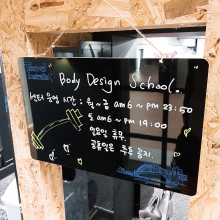 Body Design School.
센터 운영 시간 : 월~금 am 6 ~ pm 23:50
토 am 6 ~ pm 19:00
일요일 휴무.
공휴일은 추후 공지.